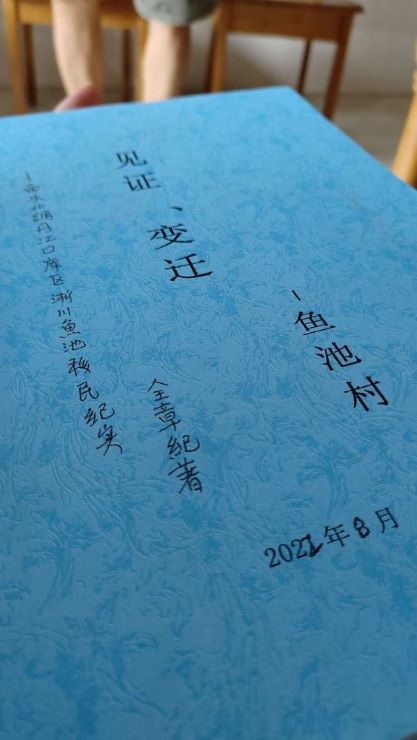 见证、变迁
–鱼池村
–南水北调丹江口库区淅川魚池移民紀实
全章紀著
2022年8月